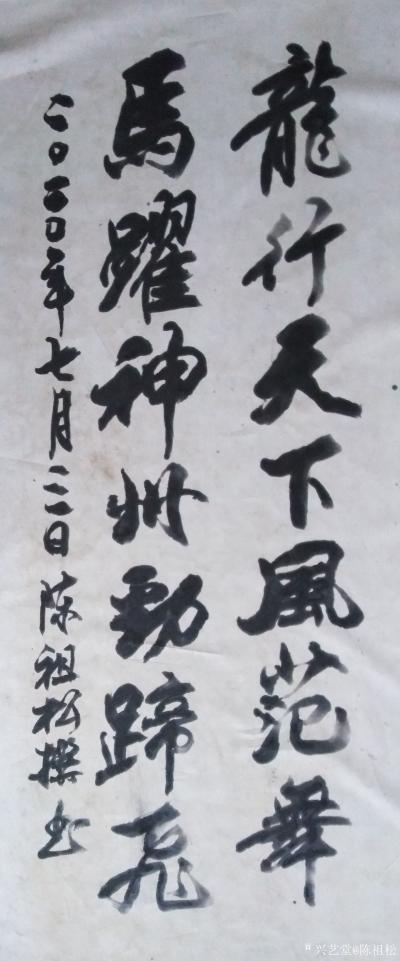 龍行天下風范舞
馬躍神州勁蹄飛
二〇二〇年七月三日陈祖松撰书
兴艺堂@陈祖松